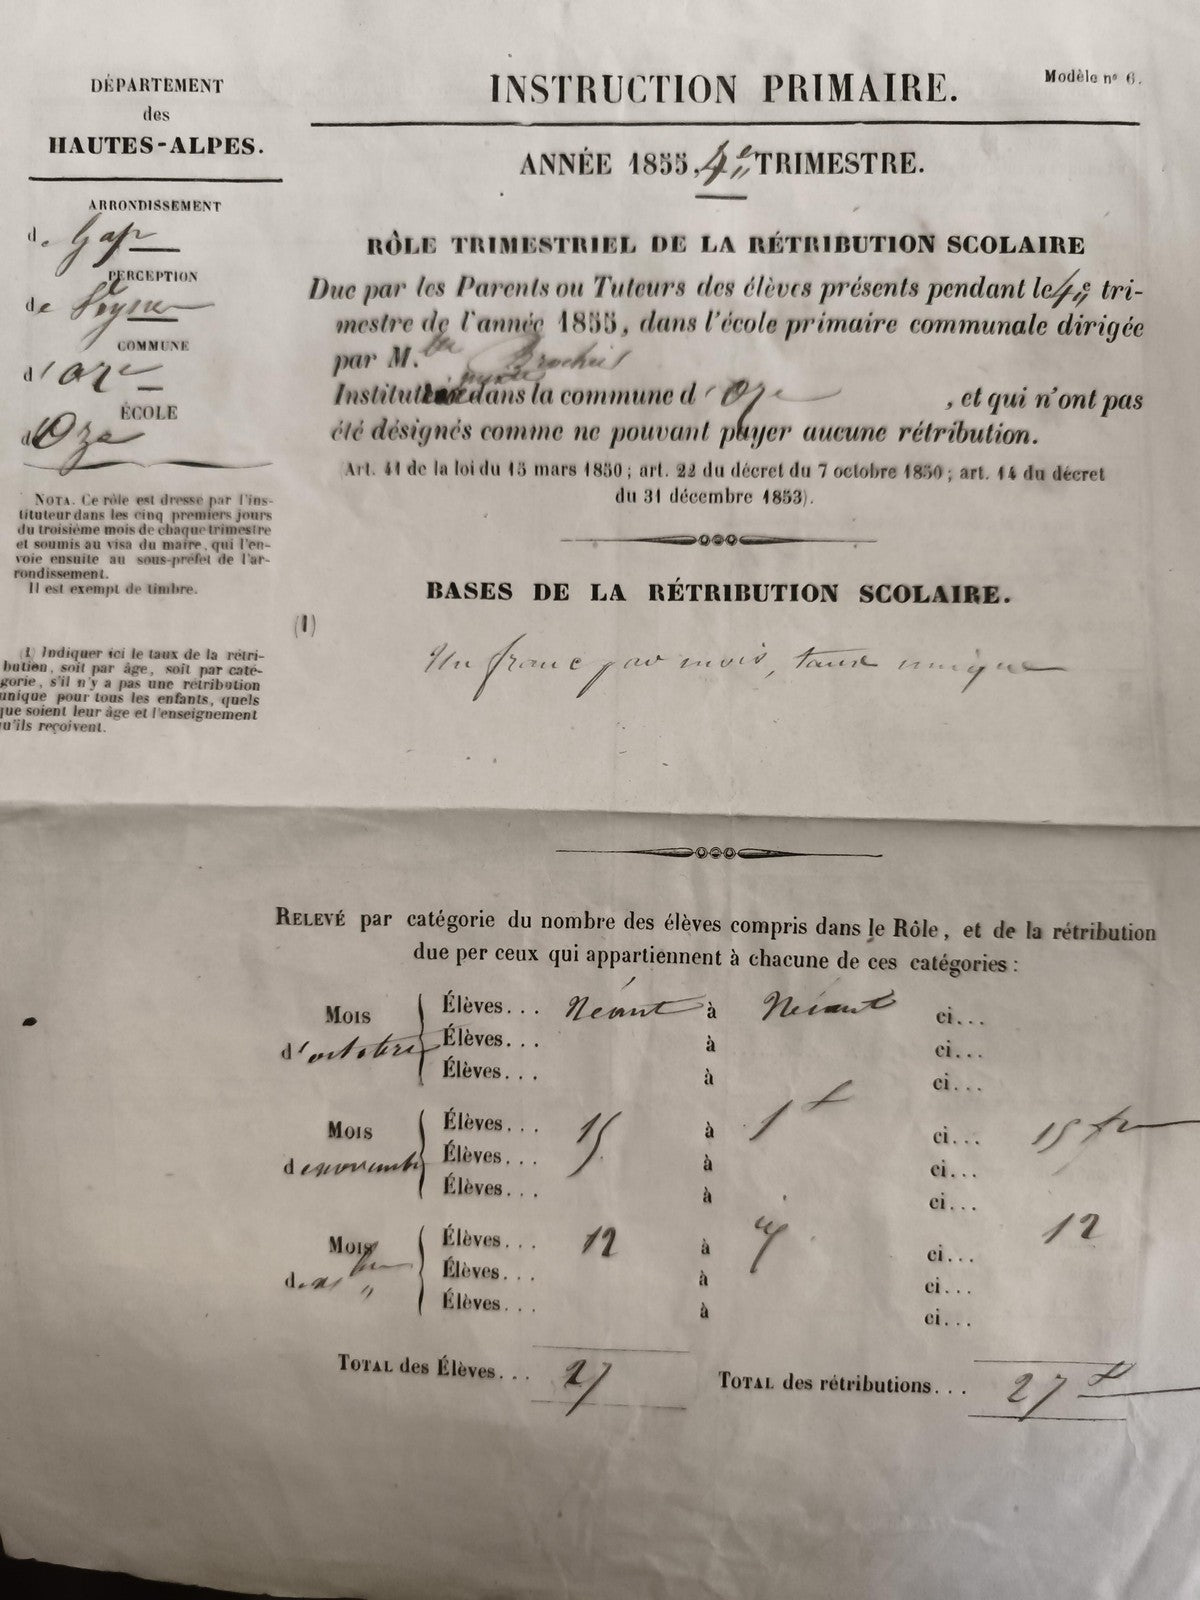 DÉPARTEMENT
des
HAUTES-ALPES.
ARRONDISSEMENT
de Gap
PERCEPTION
de Veynes
COMMUNE
d'oze
ÉCOLE
d'Oze
NOTA. Ce rôle est dressé par l'ins-
tituteur dans les cinq premiers jours
du troisième mois de chaque trimestre
et soumis au visa du maire, qui l'en-
voie ensuite au sous-préfet de l'ar-
rondissement.
Il est exempt de timbre.
(1) Indiquer ici le taux de la rétri-
bution, soit par âge, soit par caté-
gorie, s'il n'y a pas une rétribution
unique pour tous les enfants, quels
que soient leur âge et l'enseignement
qu'ils reçoivent.
Modèle nº 6.
INSTRUCTION PRIMAIRE.
ANNÉE 1855, 4e TRIMESTRE.
RÔLE TRIMESTRIEL DE LA RÉTRIBUTION SCOLAIRE
Due par les Parents ou Tuteurs des élèves présents pendant le 4e tri-
mestre de l'année 1855, dans l'école primaire communale dirigée
par M.
Institut dans la commune d'Oze , et qui n'ont pas
été désignés comme ne pouvant payer aucune rétribution.
(Art. 41 de la loi du 15 mars 1850 ; art. 22 du décret du 7 octobre 1850 ; art. 14 du décret
du 31 décembre 1853).
BASES DE LA RÉTRIBUTION SCOLAIRE.
(1)
Un franc par mois, taux unique
RELEVÉ par catégorie du nombre des élèves compris dans le Rôle, et de la rétribution
due per ceux qui appartiennent à chacune de ces catégories :
Mois d'octobre
Élèves... Néant à Néant ci...
Élèves... à ci...
Élèves... à ci...
Mois de novembre
Élèves... 15 à 1 f ci... 15 fr
Élèves... à ci...
Élèves... à ci...
Mois de
Élèves... 12 à ci... 12
Élèves... à ci...
Élèves... à ci...
TOTAL des Élèves... 27
TOTAL des rétributions... 27 f